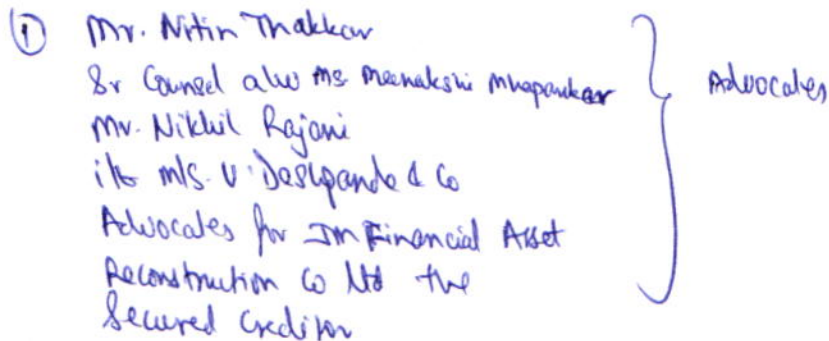 ① Mr. Nitin Thakkar
Sr Counsel a/w Ms Meenakshi Mhapankar
Mr. Nikhil Rajani
i/b M/s. V. Deshpande & Co
Advocates for JM Financial Asset
Reconstruction Co Ltd the
Secured Creditor
Advocates